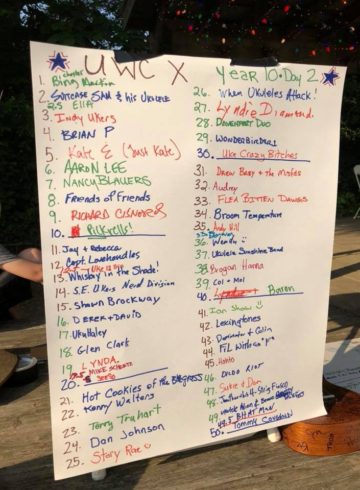 UWC X Year 10 · Day 2
1. Bing
2. Suitcase Sam & his Ukulele
2.5 Ella
3. Indy Ukers
4. Brian P
5. Kate E (Just Kate)
6. AARON LEE
7. NANCY BLAUERS
8. Friends of Friends
9. RICHARD CISNEROS
10. Pukrells!
11. Jay & Rebecca
12. Capt. Lovehandles
13. Whiskey in the Shade!
14. S.E. Ukers Naval Division
15. Shawn Brockway
16. DEREK & DAVID
17. UkuHaley
18. Glen Clark
19. LYNDA
MIKE
20.
21. Hot Cookies of the
22. Kenny Walters
23. Terry Truhart
24. Dan Johnson
25. Story Rae
26. When Ukuleles Attack!
27. Lyndie Diamond.
28. Davenport Duo
29. WONDERBIRDS
30. Uke Crazy Bitches
31. Drew Bary & the Misfits
32. Audrey
33. FLEA BITTEN DAWGS
34. Broom Temperature
35. Andy Bill
36. Wendy
37. Ukulele Sunshine Band
38. Brogan Hanna
39. Col + Mol
40. Baron
41. Ian Shaw
42. Lexingtones
43. & Colin
44.
45. Hahto
46. DILDO RIOT
47. Susie & Dan
48.
49.
49.5 BHAT MAN
50. Tommy